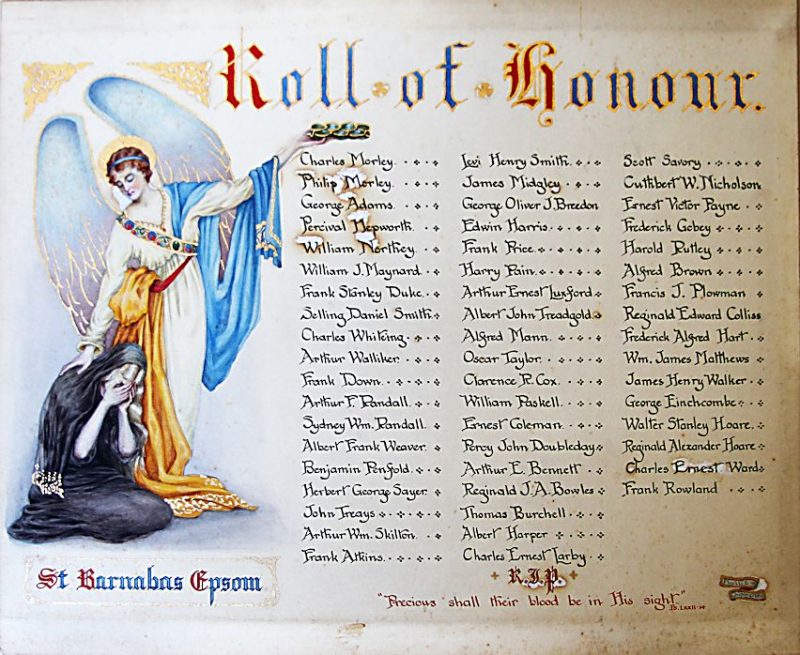 Roll of Honour.
Charles Morley
Philip Morley.
George Adams.
Percival Hepworth.
William Northey.
William J. Maynard.
Frank Stanley Duke.
Selling Daniel Smith.
Charles Whiting.
Arthur Walliker.
Frank Down.
Arthur F. Randall.
Sydney Wm. Randall.
Albert Frank Weaver.
Benjamin Penfold.
Herbert George Sayer.
John Treays
Arthur Wm. Skilton.
Frank Atkins.
Levi Henry Smith.
James Midgley
George Oliver J. Breedon
Edwin Harris.
Frank Price.
Harry Pain.
Arthur Ernest Luxford
Albert John Treadgold
Alfred Mann.
Oscar Taylor.
Clarence R. Cox.
William Paskell.
Ernest Coleman.
Percy John Doubleday
Arthur E. Bennett
Reginald J. A. Bowles
Thomas Burchell
Albert Harper
Charles Ernest Larby
Scott Savory
Cuthbert W. Nicholson
Ernest Victor Payne
Frederick Gobey
Harold Rutley
Alfred Brown
Francis J. Plowman
Reginald Edward Colliss
Frederick Alfred Hart
Wm. James Matthews
James Henry Walker
George Einchcombe
Walter Stanley Hoare.
Reginald Alexander Hoare
Charles Ernest Ward
Frank Rowland
R.I.P.
St Barnabas Epsom
"Precious shall their blood be in His sight"
Ps. LXXII-14